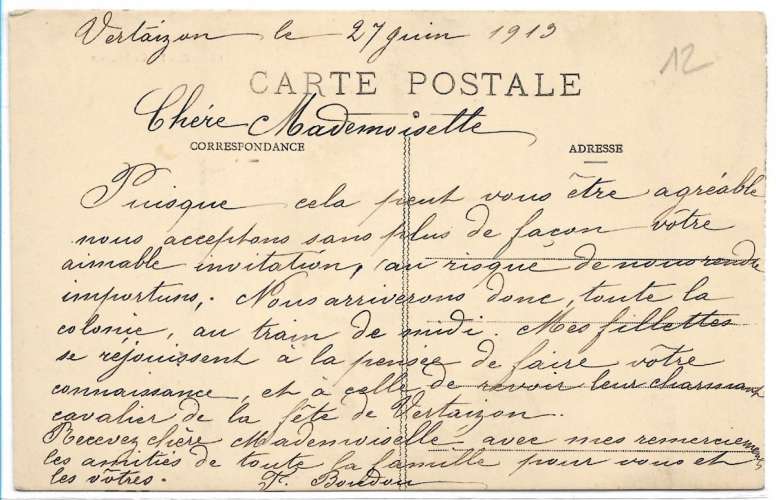 Vertaizon le 27 juin 1913
12
CARTE POSTALE
Chére Mademoiselle
CORRESPONDANCE
ADRESSE
Puisque cela peut vous être agréable
nous acceptons sans plus de façon votre
aimable invitation, au risque de nous rendre
importuns. Nous arriverons donc, toute la
colonie, au train de midi. Mes fillettes
se réjouissent à la pensée de faire vôtre
connaissance, et à celle de revoir leur charmant
cavalier de la fête de Vertaizon.
Recevez chère Mademoiselle avec mes remerciements
les amitiés de toute la famille pour vous et
les vôtres. F. Boudon